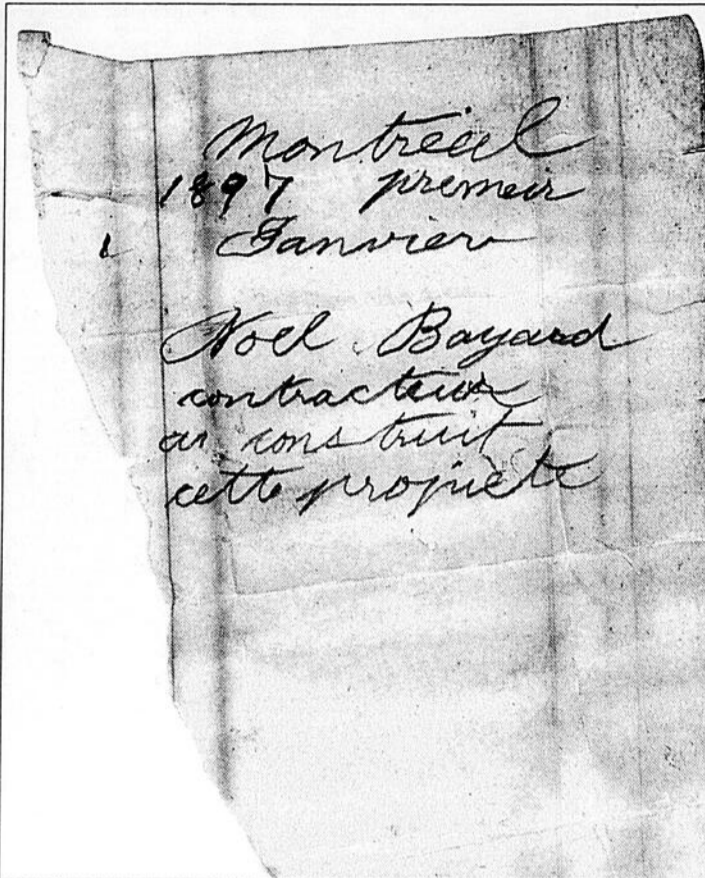 Montréal
1897 premeir
Janvier
Noel Bayard
contracteur
a construit
cette propriete